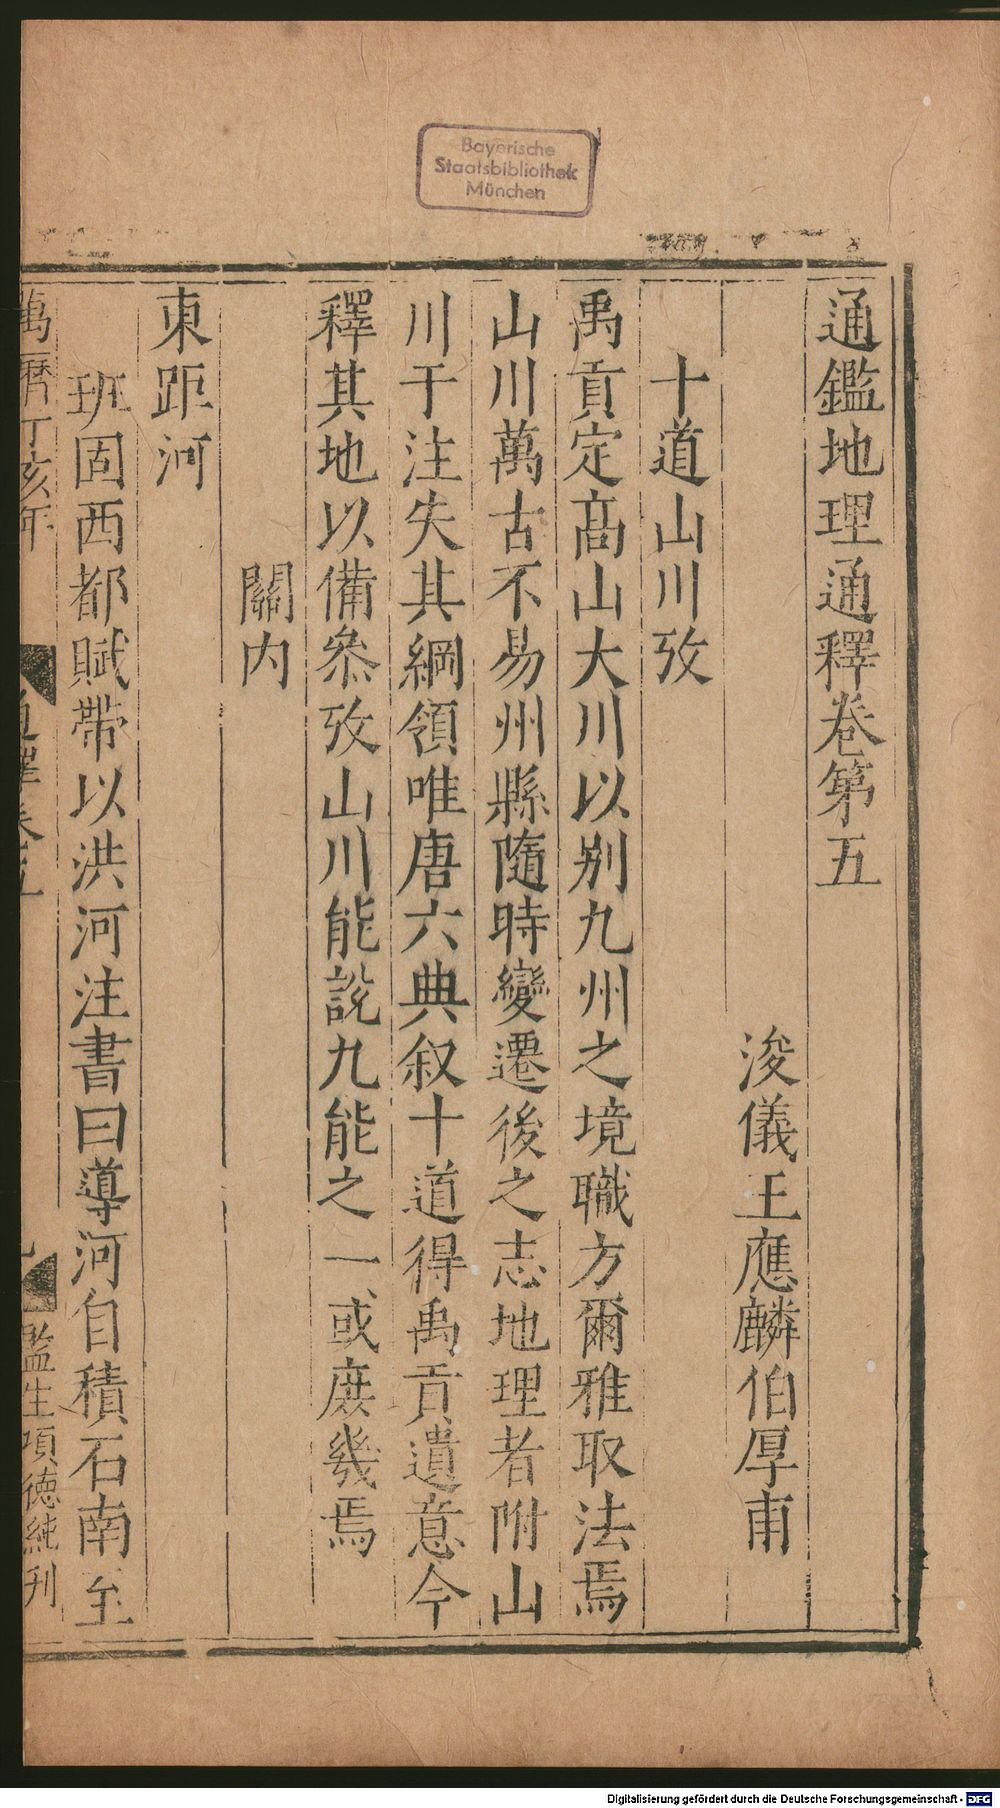 Bayerische
Staatsbibliothek
München
通鑑地理通釋卷第五
浚儀王應麟伯厚甫
十道山川攷
禹貢定高山大川以别九州之境職方爾雅取法焉
山川萬古不易州縣隨時變遷後之志地理者附山
川于注失其綱領唯唐六典叙十道得禹貢遺意今
釋其地以備叅攷山川能說九能之一或庶幾焉
關内
東距河
班固西都賦帶以洪河注書曰導河自積石南至
萬曆丁亥年
通釋卷五
監生項德純刊
Digitalisierung gefördert durch die Deutsche Forschungsgemeinschaft - DFG